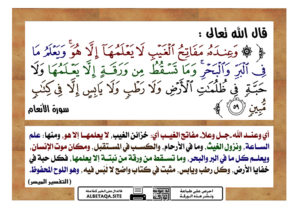 قال الله تعالى :
﴿ ۞ وَعِندَهُۥ مَفَاتِحُ ٱلْغَيْبِ لَا يَعْلَمُهَآ إِلَّا هُوَ ۚ وَيَعْلَمُ مَا
فِى ٱلْبَرِّ وَٱلْبَحْرِ ۚ وَمَا تَسْقُطُ مِن وَرَقَةٍ إِلَّا يَعْلَمُهَا وَلَا
حَبَّةٍ فِى ظُلُمَٰتِ ٱلْأَرْضِ وَلَا رَطْبٍ وَلَا يَابِسٍ إِلَّا فِى كِتَٰبٍ
مُّبِينٍ ٥٩ ﴾ سورة الأنعام
أي وعند الله -جل وعلا- مفاتح الغيب أي: خزائن الغيب، لا يعلمها إلا هو، ومنها: علم
الساعة، ونزول الغيث، وما في الأرحام، والكسب في المستقبل، ومكان موت الإنسان،
ويعلم كل ما في البر والبحر، وما تسقط من ورقة من نبتة إلا يعلمها، فكل حبة في
خفايا الأرض، وكل رطب ويابس، مثبت في كتاب واضح لا لبس فيه، وهو اللوح المحفوظ.
(التفسير الميسر)
ALBETAQA.SITE